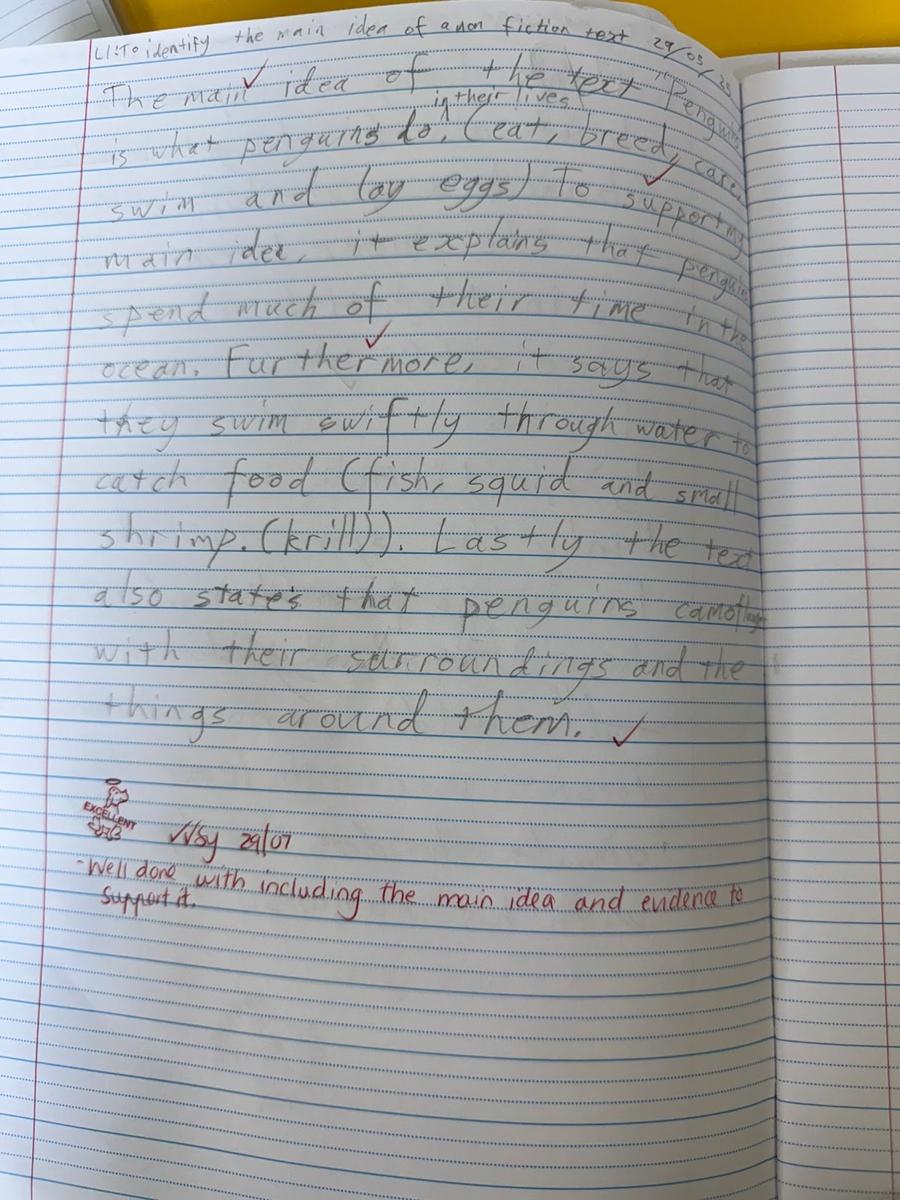 LI: To identify the main idea of a non fiction text 29/05/
The main idea of the text "Penguins
in their lives
is what penguins do. (eat, breed, care,
swim and lay eggs) To support my
main idea, it explains that penguins
spend much of their time in the
ocean. Furthermore, it says that
they swim swiftly through water to
catch food (fish, squid and small
shrimp. (krill)). Lastly the text
also states that penguins
with their surroundings and the
things around them.
EXCELLENT
29/07
- Well done with including the main idea and evidence to
support it.